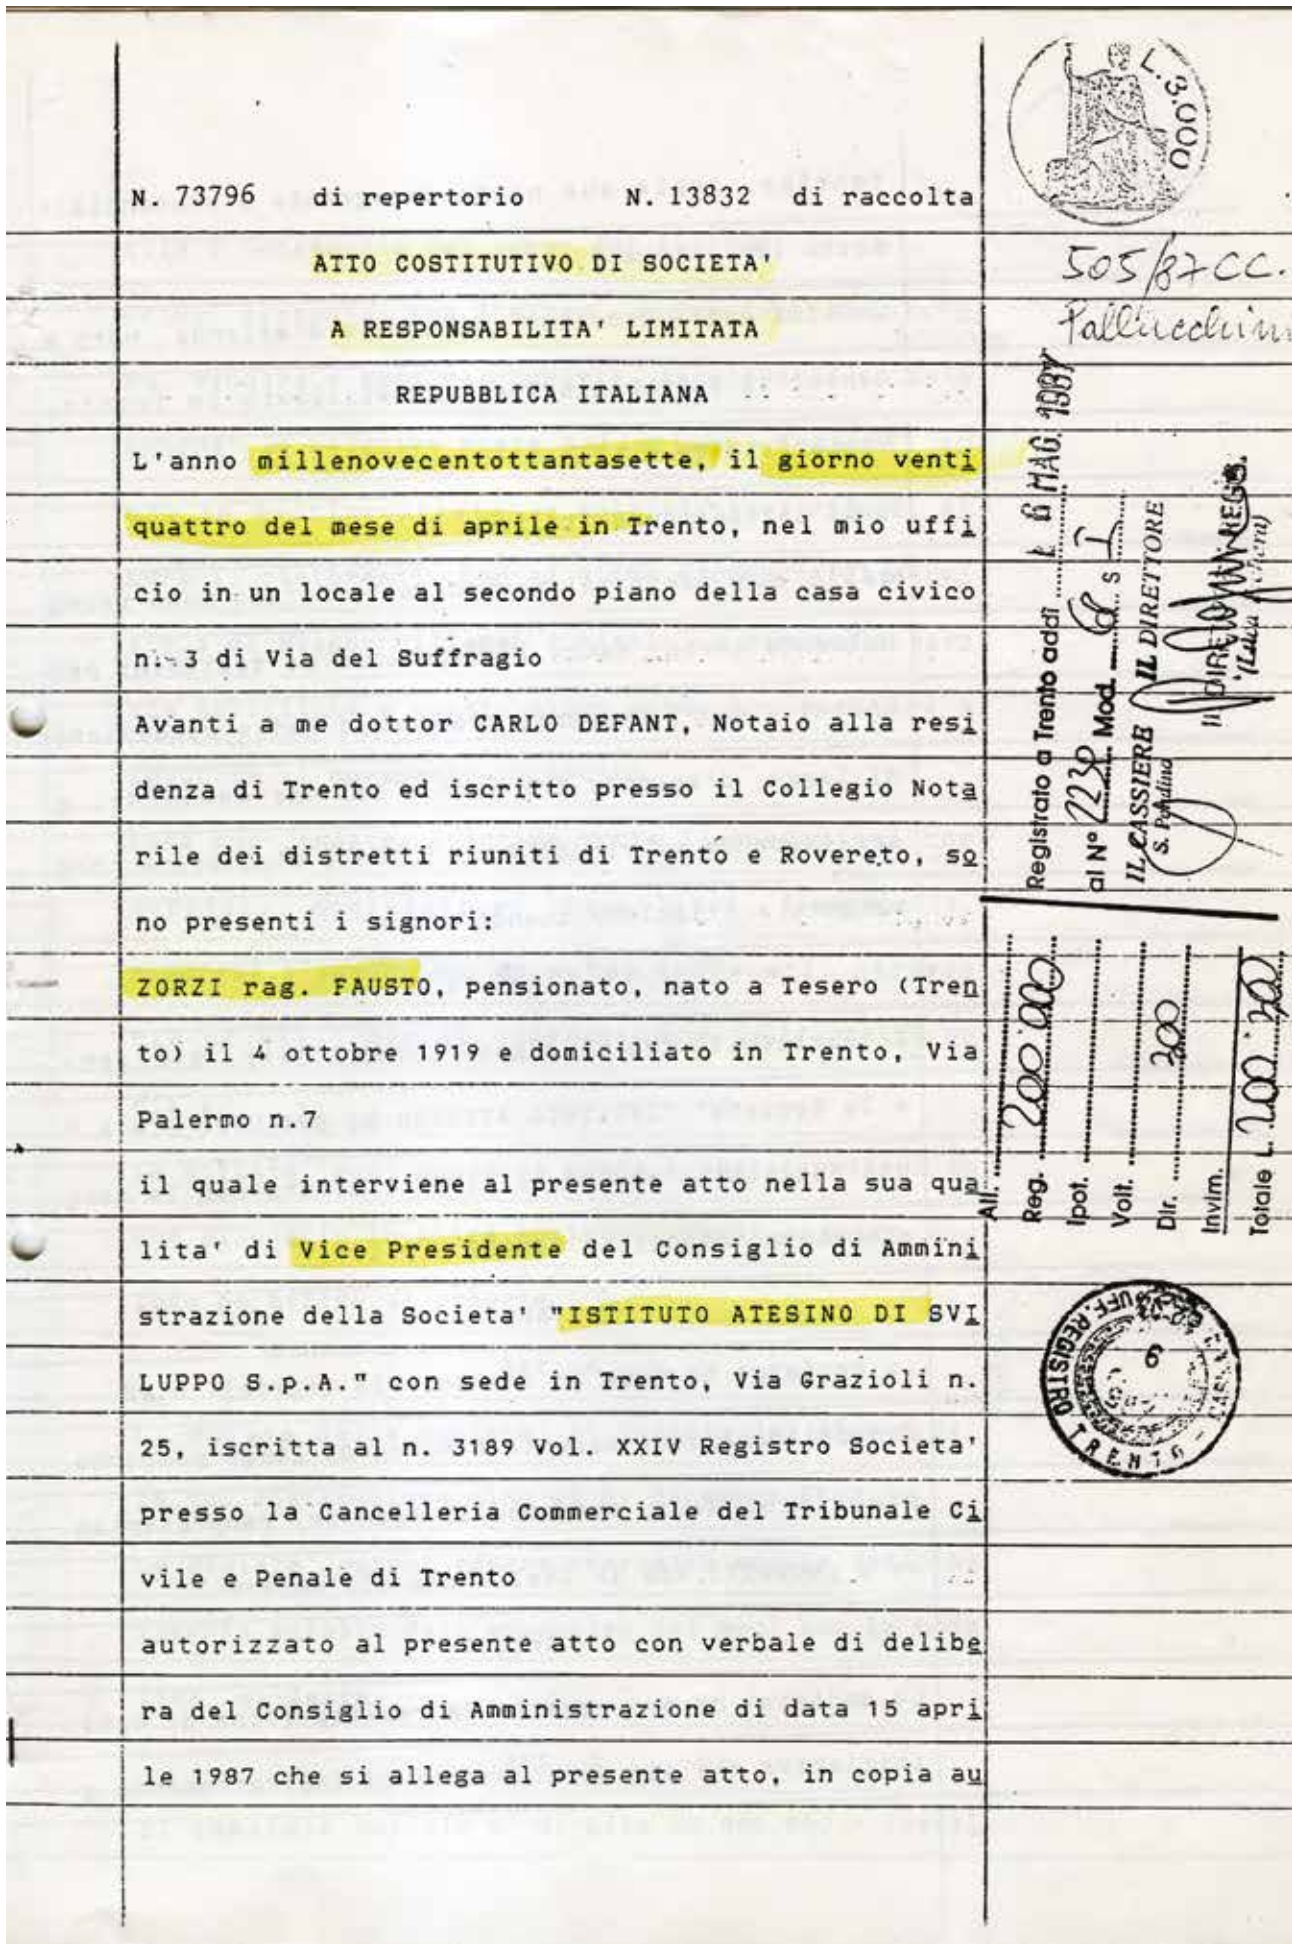 N. 73796 di repertorio N. 13832 di raccolta
ATTO COSTITUTIVO DI SOCIETA'
A RESPONSABILITA' LIMITATA
REPUBBLICA ITALIANA
L'anno millenovecentottantasette, il giorno venti
quattro del mese di aprile in Trento, nel mio uffi
cio in un locale al secondo piano della casa civico
n. 3 di Via del Suffragio
Avanti a me dottor CARLO DEFANT, Notaio alla resi
denza di Trento ed iscritto presso il Collegio Nota
rile dei distretti riuniti di Trento e Rovereto, so
no presenti i signori:
ZORZI rag. FAUSTO, pensionato, nato a Tesero (Tren
to) il 4 ottobre 1919 e domiciliato in Trento, Via
Palermo n.7
il quale interviene al presente atto nella sua qua
lita' di Vice Presidente del Consiglio di Ammini
strazione della Societa' "ISTITUTO ATESINO DI SVI
LUPPO S.p.A." con sede in Trento, Via Grazioli n.
25, iscritta al n. 3189 Vol. XXIV Registro Societa'
presso la Cancelleria Commerciale del Tribunale Ci
vile e Penale di Trento
autorizzato al presente atto con verbale di delibe
ra del Consiglio di Amministrazione di data 15 apri
le 1987 che si allega al presente atto, in copia au
L.3.000
505/87 CC.
Pallucchini
Registrato a Trento addì MAG. 1987
al N° 2238 Mod. S I
IL CASSIERE IL DIRETTORE
S. Pandino
IL DIRETTORE
All.
Reg. 200 000
Ipot.
Volt.
Dir. 300
Invim.
Totale L. 200 300
UFF. REGISTRO TRENTO